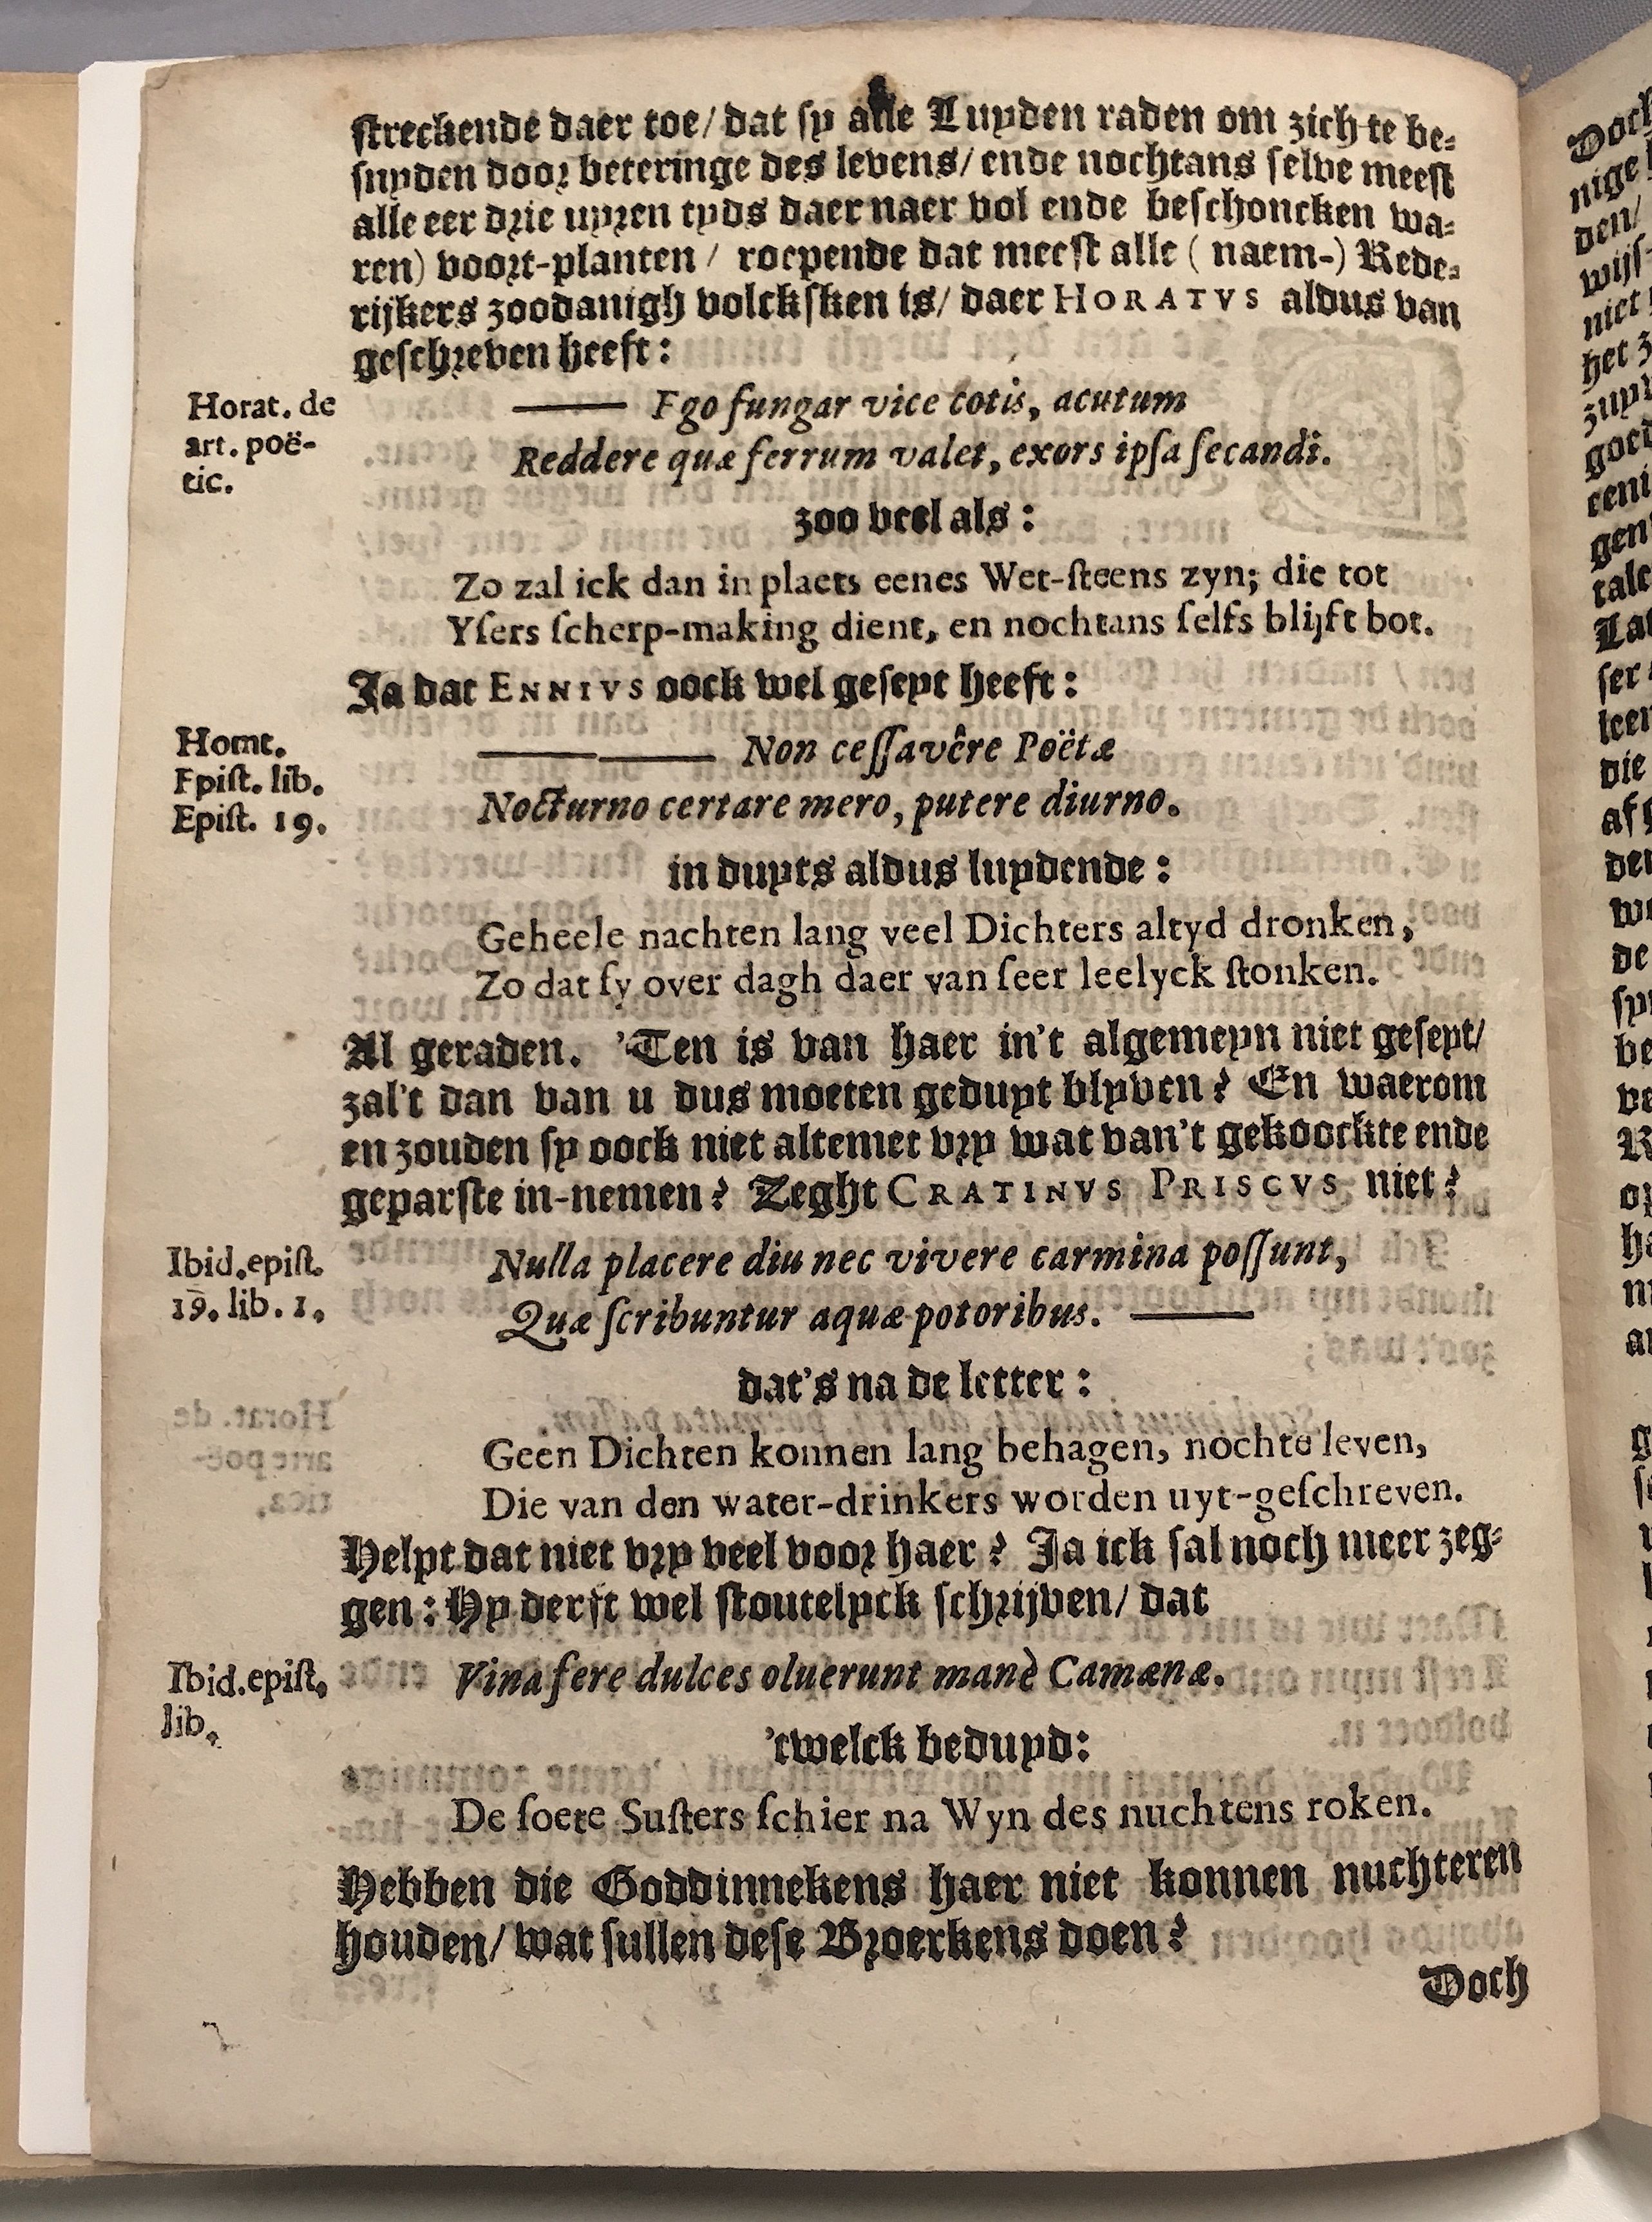 streckende daer toe/ dat sy alle Luyden raden om zich te be-
snyden door beteringe des levens/ ende nochtans selve meest
alle eer drie uyren tyds daer naer vol ende beschoncken wa-
ren) voort-planten / roepende dat meest alle ( naem-) Rede-
rijkers zoodanigh volcksken is/ daer HORATVS aldus van
geschreven heeft:
Horat. de
art. poë-
tic.
—— Fgo fungar vice cotis, acutum
Reddere quæ ferrum valet, exors ipsa secandi.
zoo veel als:
Zo zal ick dan in plaets eenes Wet-steens zyn; die tot
Ysers scherp-making dient, en nochtans selfs blijft bot.
Ja dat ENNIVS oock wel geseyt heeft:
Homt.
Fpist. lib.
Epist. 19.
———— Non cessavêre Poëtæ
Nocturno certare mero, putere diurno.
in duyts aldus luydende:
Geheele nachten lang veel Dichters altyd dronken,
Zo dat sy over dagh daer van seer leelyck stonken.
Al geraden. 'Ten is van haer in't algemeyn niet geseyt/
zal't dan van u dus moeten geduyt blyven? En waerom
en zouden sy oock niet altemet vry wat van't gekoockte ende
geparste in-nemen? Zeght CRATINVS PRISCVS niet?
Ibid. epist.
19. lib. 1.
Nulla placere diu nec vivere carmina possunt,
Quæ scribuntur aquæ potoribus. ——
dat's na de letter:
Geen Dichten konnen lang behagen, nochte leven,
Die van den water-drinkers worden uyt-geschreven.
Helpt dat niet vry veel voor haer? Ja ick sal noch meer zeg-
gen: Hy derft wel stoutelyck schrijven/ dat
Ibid. epist.
lib.
Vina fere dulces oluerunt manè Camænæ.
'twelck beduyd:
De soete Susters schier na Wyn des nuchtens roken.
Hebben die Goddinnekens haer niet konnen nuchteren
houden/ wat sullen dese Broerkens doen?
Doch